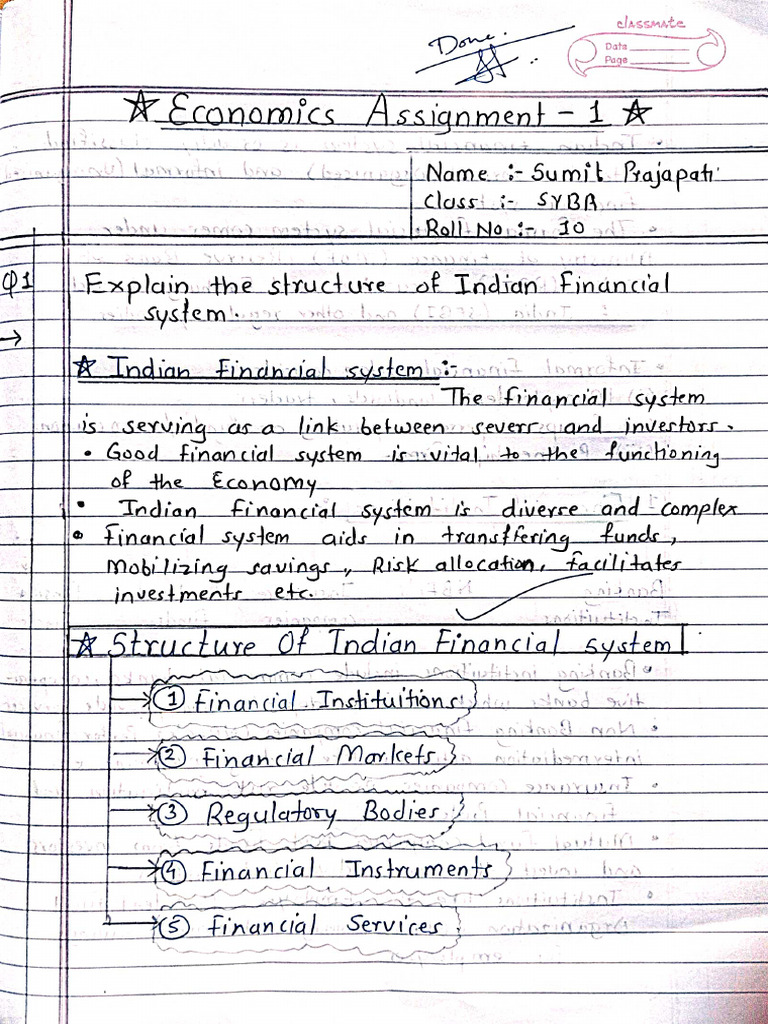 Done.
classmate
Date
Page
☆ Economics Assignment - 1 ☆
Name :- Sumit Prajapati
Class :- SYBA
Roll No :- 10
Q1 Explain the structure of Indian Financial
system.
→
☆ Indian Financial system :-
The financial system
is serving as a link between severs and investors.
• Good financial system is vital to the functioning
of the Economy
• Indian financial system is diverse and complex
• Financial system aids in transffering funds,
Mobilizing savings, Risk allocation, facilitates
investments etc.
☆ Structure Of Indian Financial system
→ ① Financial Instituitions
→ ② Financial Markets
→ ③ Regulatory Bodies
→ ④ Financial Instruments
→ ⑤ Financial Services